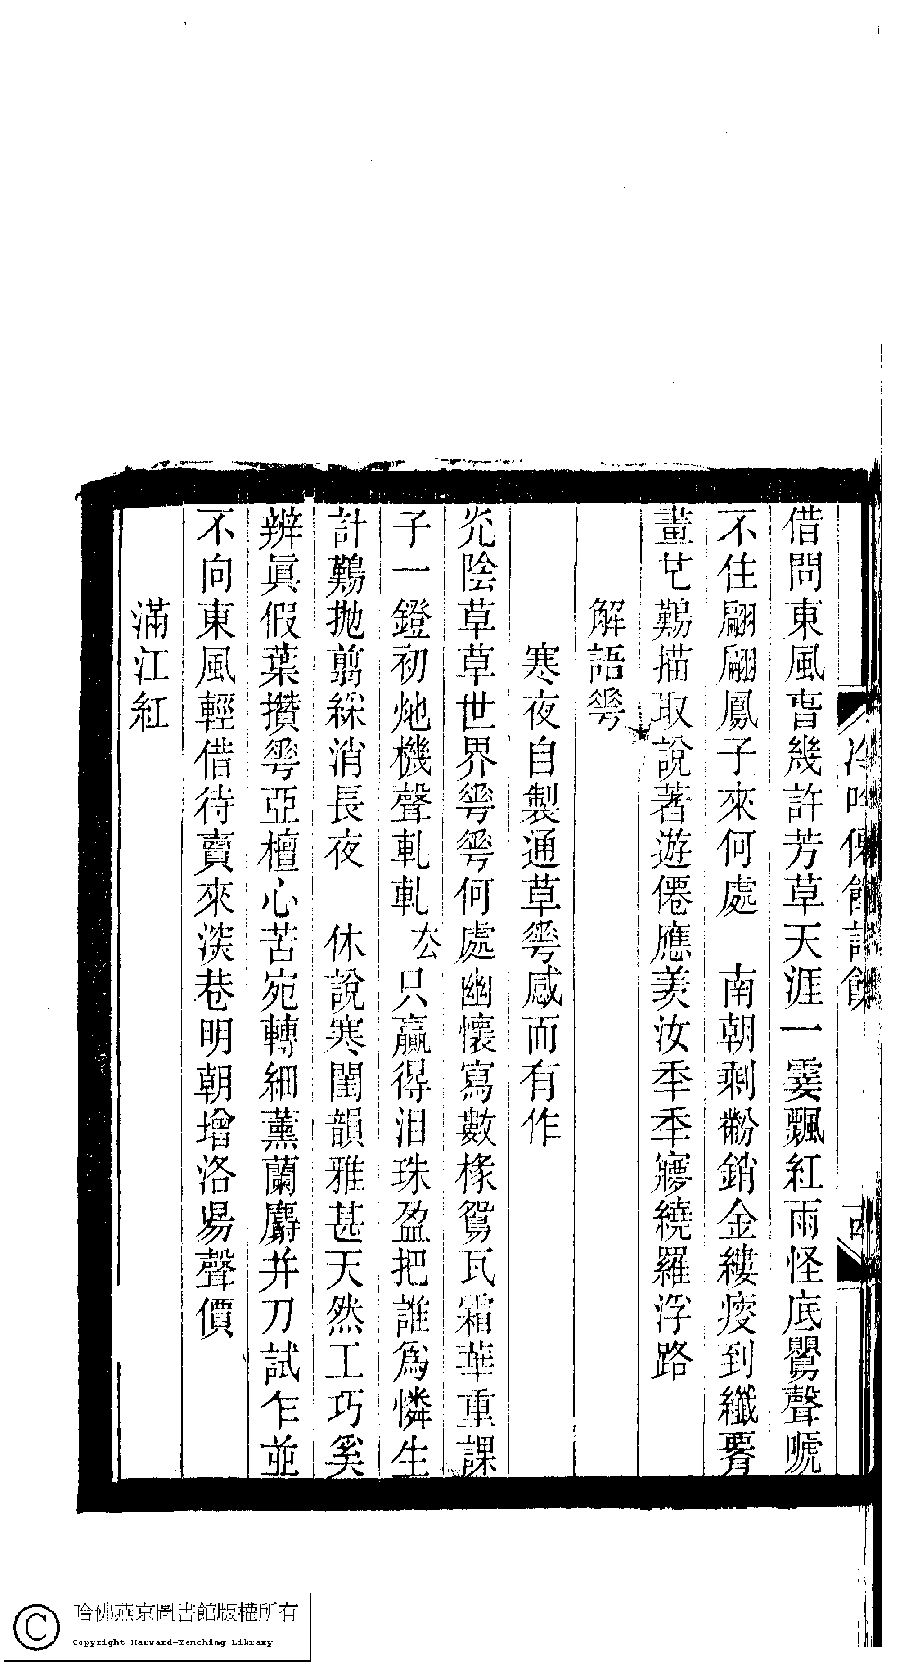 冷吟僊館詩餘
借問東風曾幾許芳草天涯一霎飄紅雨怪底鸎聲唬
不住翩翩鳳子來何處　南朝剩粉銷金縷瘦到纖腰
畫也難描取說著遊僊應羨汝秊秊㝱繞羅浮路
解語𠌶
寒夜自製通草𠌶感而有作
光陰草草世界𠌶𠌶何處幽懷寫數椽鴛瓦霜華重課
子一鐙初灺機聲軋軋厺只贏得泪珠盈把誰爲憐生
計難抛翦綵消長夜　休說寒閨韻雅甚天然工巧奚
辨眞假葉攢𠌶亞檀心苦宛轉細薰蘭麝并刀試乍並
不向東風輕借待賣來深巷明朝增洛昜聲價
滿江紅
哈佛燕京圖書館版權所有
Copyright Harvard-Yenching Library